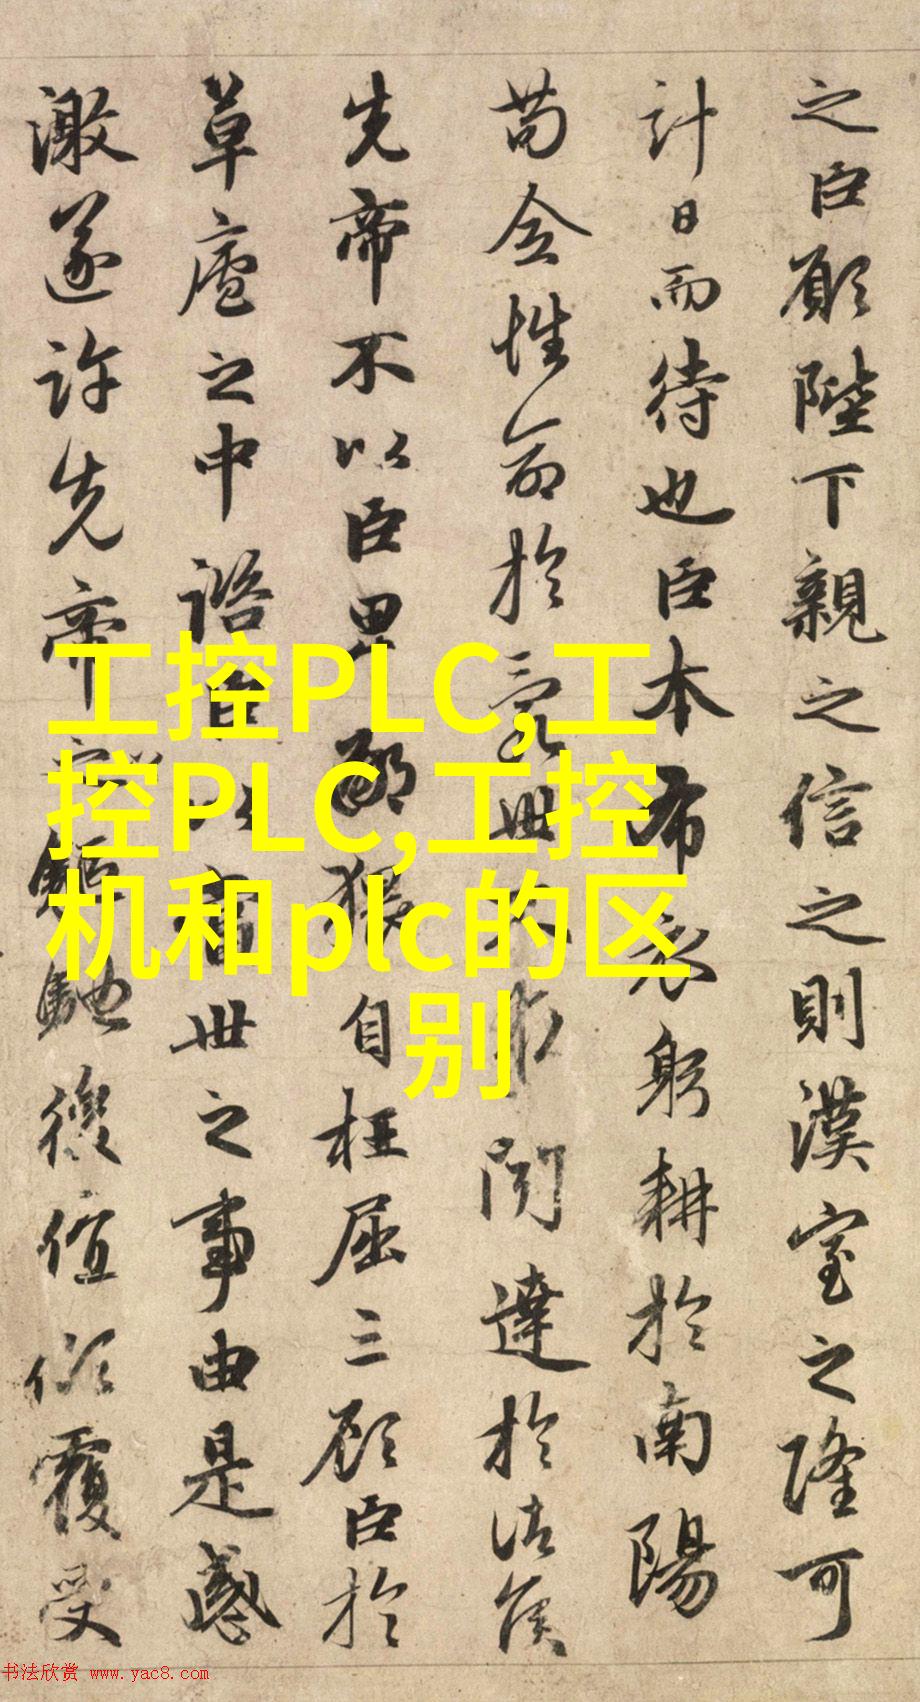 之臣願陛下親之信之則漢室之隆可
計日而待也臣本布衣躬耕於南陽
苟全性命於亂世不求聞達於諸侯
先帝不以臣卑鄙猥自枉屈三顧臣於
草廬之中諮臣以當世之事由是感
激遂許先帝以驅馳後值傾覆受
工控PLC,工
控PLC,工控
机和plc的区
别
书法欣赏 www.yac8.com